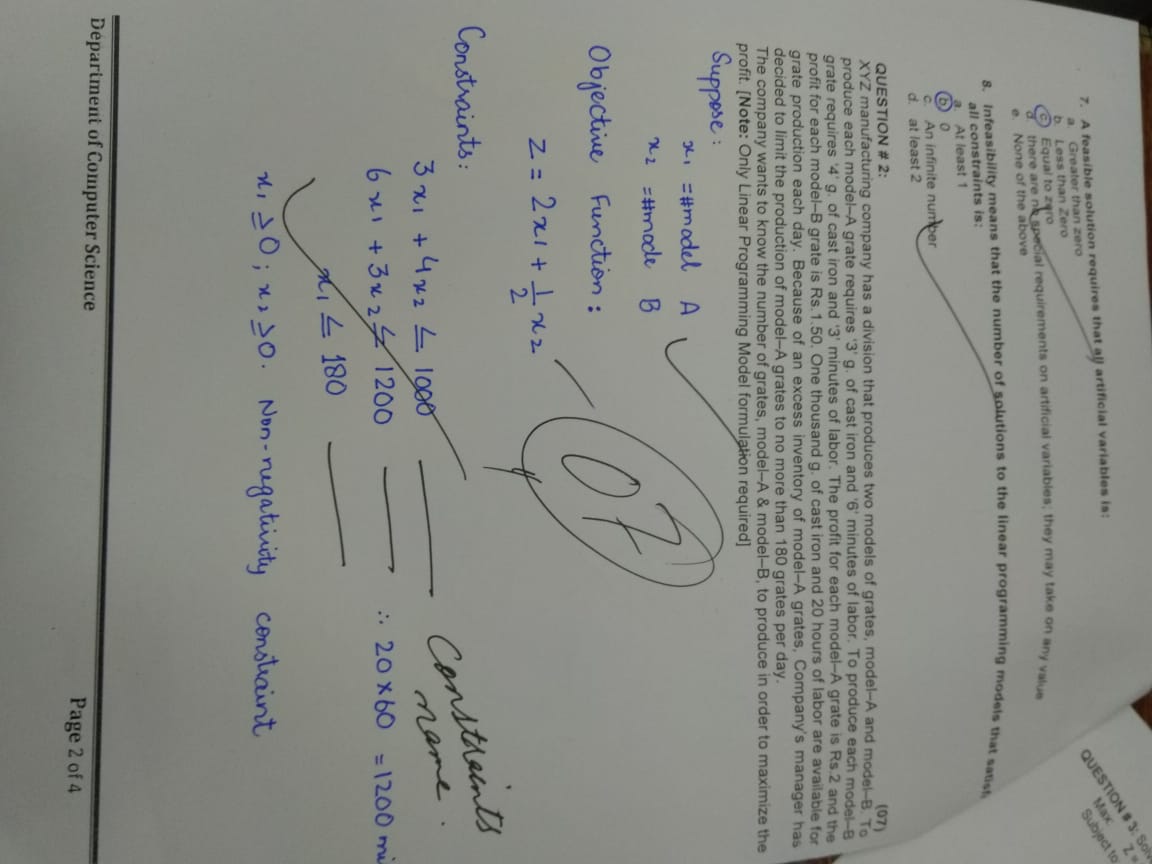 7. A feasible solution requires that all artificial variables is:
a. Greater than zero
b. Less than Zero
c. Equal to zero
d. there are no special requirements on artificial variables; they may take on any value
e. None of the above
8. Infeasibility means that the number of solutions to the linear programming models that satisfy
all constraints is:
a. At least 1
b. 0
c. An infinite number
d. at least 2
QUESTION # 2: (07)
XYZ manufacturing company has a division that produces two models of grates, model–A and model–B. To
produce each model–A grate requires '3' g. of cast iron and '6' minutes of labor. To produce each model–B
grate requires '4' g. of cast iron and '3' minutes of labor. The profit for each model–A grate is Rs.2 and the
profit for each model–B grate is Rs.1.50. One thousand g. of cast iron and 20 hours of labor are available for
grate production each day. Because of an excess inventory of model–A grates, Company's manager has
decided to limit the production of model–A grates to no more than 180 grates per day.
The company wants to know the number of grates, model–A & model–B, to produce in order to maximize the
profit. [Note: Only Linear Programming Model formulation required]
Suppose:
x₁ = #model A
x₂ = #mode B
Objective Function:
Z = 2x₁ + 1/2 x₂
07
Constraints:
3x₁ + 4x₂ ≤ 1000
Constraints
name.
6x₁ + 3x₂ ≤ 1200 ∴ 20×60 = 1200 mi
x₁ ≤ 180
x₁ ≥ 0 ; x₂ ≥ 0. Non-negativity constraint
Department of Computer Science Page 2 of 4
QUESTION # 3: Solv
Max: Z =
Subject to